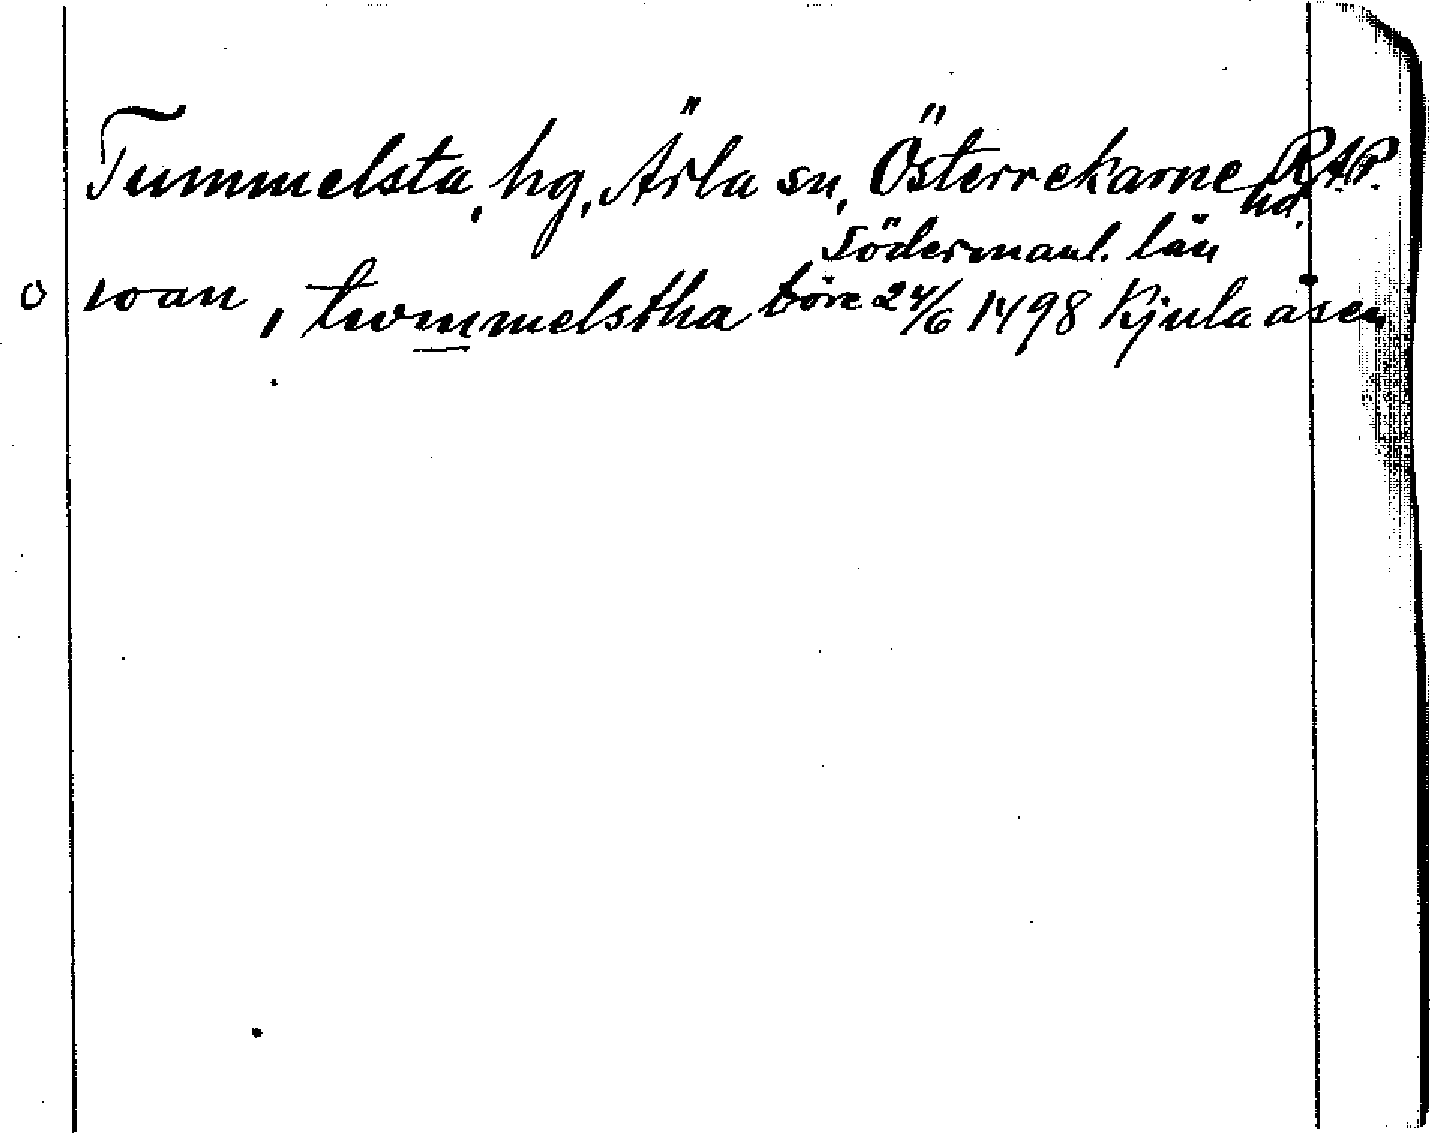 Tummelsta, hg, Ärla sn, Österrekarne hd. RAP.
Södermanl. län
o wan, twmmelstha böre 24/6 1498 Kjulaåsen